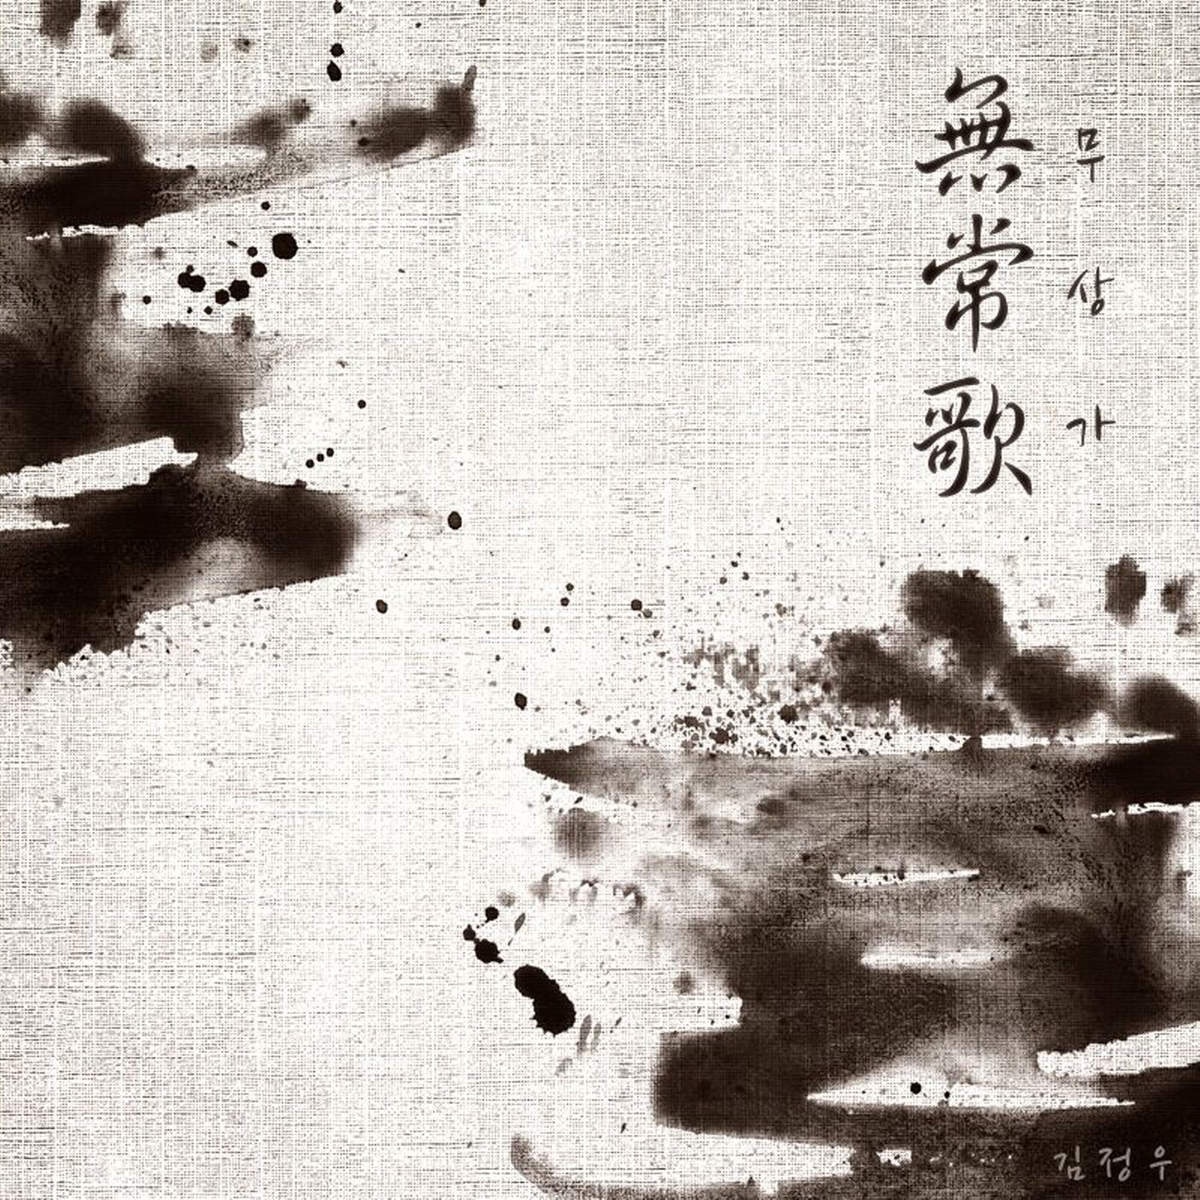 無常歌
무상가
김정우